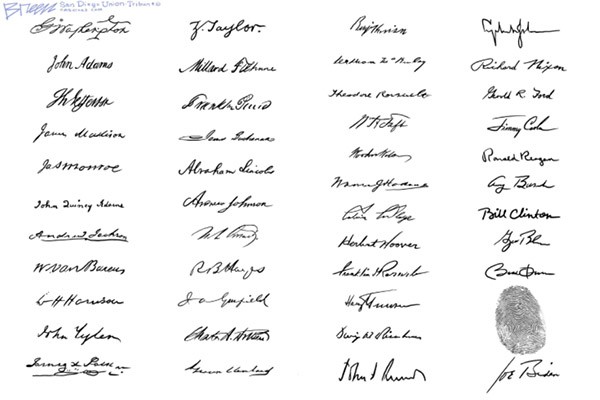 Breen San Diego Union-Tribune
G. Washington
John Adams
Th Jefferson
James Madison
Jas Monroe
John Quincy Adams
Andrew Jackson
W. H Harrison
John Tyler
James K Polk
Z. Taylor.
Millard Fillmore
Franklin Pierce
James Buchanan
Abraham Lincoln
Andrew Johnson
R B Hayes
J A Garfield
Chester A. Arthur
Grover Cleveland
Benj Harrison
William McKinley
Theodore Roosevelt
W H Taft
Woodrow Wilson
Warren G Harding
Calvin Coolidge
Herbert Hoover
Franklin D Roosevelt
Harry Truman
Dwight D Eisenhower
John F Kennedy
Lyndon B Johnson
Richard Nixon
Gerald R. Ford
Jimmy Carter
Ronald Reagan
G Bush
Bill Clinton
Barack Obama
Joe Biden